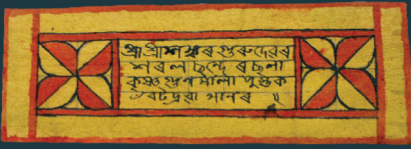 শ্ৰী শ্ৰী শঙ্কৰ গুৰুদেৱৰ
শৰল ছন্দে ৰছনা
কৃষ্ণ গুণ মালা পুস্তক
বটদ্ৰৱা থানৰ ॥